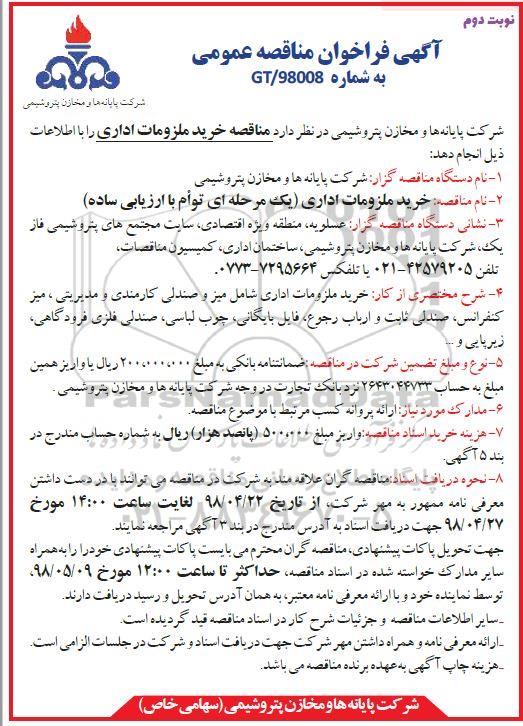 نوبت دوم
آگهی فراخوان مناقصه عمومی
به شماره GT/98008
شرکت پایانه‌ها و مخازن پتروشیمی
شرکت پایانه‌ها و مخازن پتروشیمی در نظر دارد مناقصه خرید ملزومات اداری را با اطلاعات
ذیل انجام دهد:
۱- نام دستگاه مناقصه گزار: شرکت پایانه ها و مخازن پتروشیمی
۲- نام مناقصه: خرید ملزومات اداری (یک مرحله ای توأم با ارزیابی ساده)
۳- نشانی دستگاه مناقصه گزار: عسلویه، منطقه ویژه اقتصادی، سایت مجتمع های پتروشیمی فاز
یک، شرکت پایانه ها و مخازن پتروشیمی، ساختمان اداری، کمیسیون مناقصات،
تلفن ۴۲۵۷۹۲۰۵-۰۲۱ یا تلفکس ۷۲۹۵۶۶۴-۰۷۷۳.
۴- شرح مختصری از کار: خرید ملزومات اداری شامل میز و صندلی کارمندی و مدیریتی ، میز
کنفرانس، صندلی ثابت و ارباب رجوع، فایل بایگانی، چوب لباسی، صندلی فلزی فرودگاهی،
زیرپایی و ...
۵- نوع و مبلغ تضمین شرکت در مناقصه: ضمانتنامه بانکی به مبلغ ۲۰۰،۰۰۰،۰۰۰ ریال یا واریز همین
مبلغ به حساب ۲۶۴۳۰۴۴۷۳۳ نزد بانک تجارت در وجه شرکت پایانه ها و مخازن پتروشیمی .
۶- مدارک مورد نیاز: ارائه پروانه کسب مرتبط با موضوع مناقصه.
۷- هزینه خرید اسناد مناقصه: واریز مبلغ ۵۰۰،۰۰۰ (پانصد هزار) ریال به شماره حساب مندرج در
بند ۵ آگهی.
۸- نحوه دریافت اسناد: مناقصه گران علاقه مند به شرکت در مناقصه می توانند با در دست داشتن
معرفی نامه ممهور به مهر شرکت، از تاریخ ۹۸/۰۴/۲۲ لغایت ساعت ۱۴:۰۰ مورخ
۹۸/۰۴/۲۷ جهت دریافت اسناد به آدرس مندرج در بند ۳ آگهی مراجعه نمایند.
جهت تحویل پاکات پیشنهادی، مناقصه گران محترم می بایست پاکات پیشنهادی خود را به همراه
سایر مدارک خواسته شده در اسناد مناقصه، حداکثر تا ساعت ۱۲:۰۰ مورخ ۹۸/۰۵/۰۹،
توسط نماینده خود و با ارائه معرفی نامه معتبر، به همان آدرس تحویل و رسید دریافت دارند.
_سایر اطلاعات مناقصه و جزئیات شرح کار در اسناد مناقصه قید گردیده است.
_ارائه معرفی نامه و همراه داشتن مهر شرکت جهت دریافت اسناد و شرکت در جلسات الزامی است.
_هزینه چاپ آگهی به عهده برنده مناقصه می باشد.
شرکت پایانه ها و مخازن پتروشیمی (سهامی خاص)
ParsNamadData